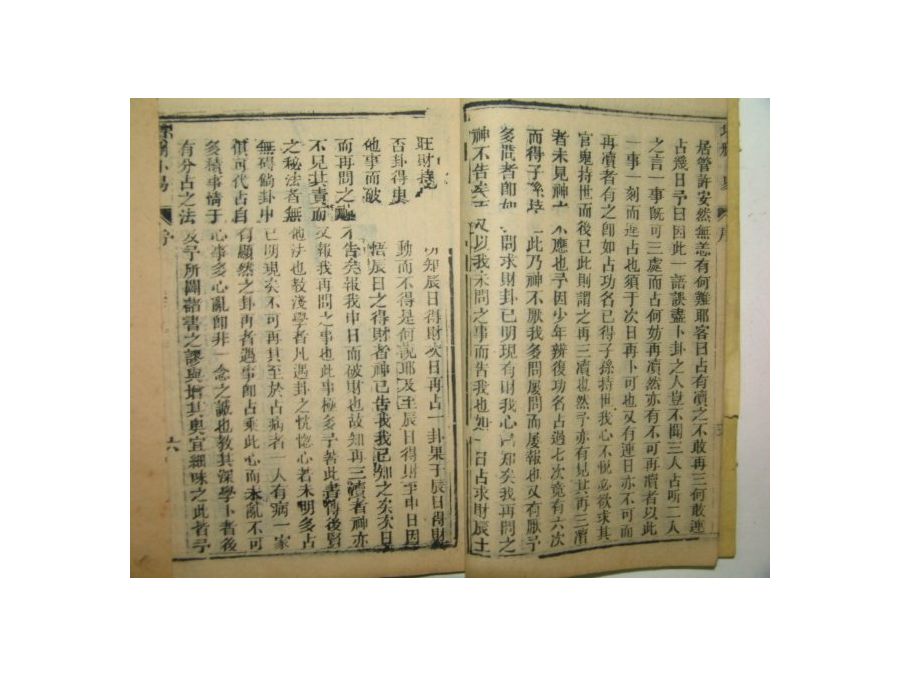 居管許安然無恙有何難耶客曰占有瀆之不敢再三何敢連
占幾日予曰因此一語誤盡卜卦之人豈不聞三人占听二人
之言一事旣可三處而占何妨再瀆然亦有不可再瀆者以此
一事一刻而連占也須于次日再卜可也又有連日亦不可而
再瀆者有之卽如占功名已得子孫持世我心不悅必欲求其
官鬼持世而後已此則謂之再三瀆也官然予亦有見其再三瀆
者未見神 不應也予因少年辨復功名占過七次竟有六次
而得子孫持 此乃神不厭我多問屢問而屢報也又有厭予
多問者卽如 問求財卦已明現有財我心已知矣我再問之
神不告矣 又以我未問之事而告我也如 日占求財辰土
旺財持 知辰日得財次日再占一卦果于辰日得財
否卦得 動而不得是何說耶及至辰日得財至申日因
他事而破 悟辰日之得財者神已告我我已知之矣次日
而再問之神不告矣報我申日而破財也故知再三瀆者神亦
不見其責而又報我再問之事也此事極多予著此書傳後賢
之秘法者無他法也敎淺學者凡遇卦之恍惚心若未明多占
無碍倘卦中已明現矣不可再 至於占病者一人有病一家
俱可代占自有顯然之卦再者遇事卽占乘此心而未亂不可
多積事情于心事多心亂卽非一念之誠也敎其深學卜者後
有分占之法及予所闢諸書之謬與增其奥宜細味之此者予
易
序
六